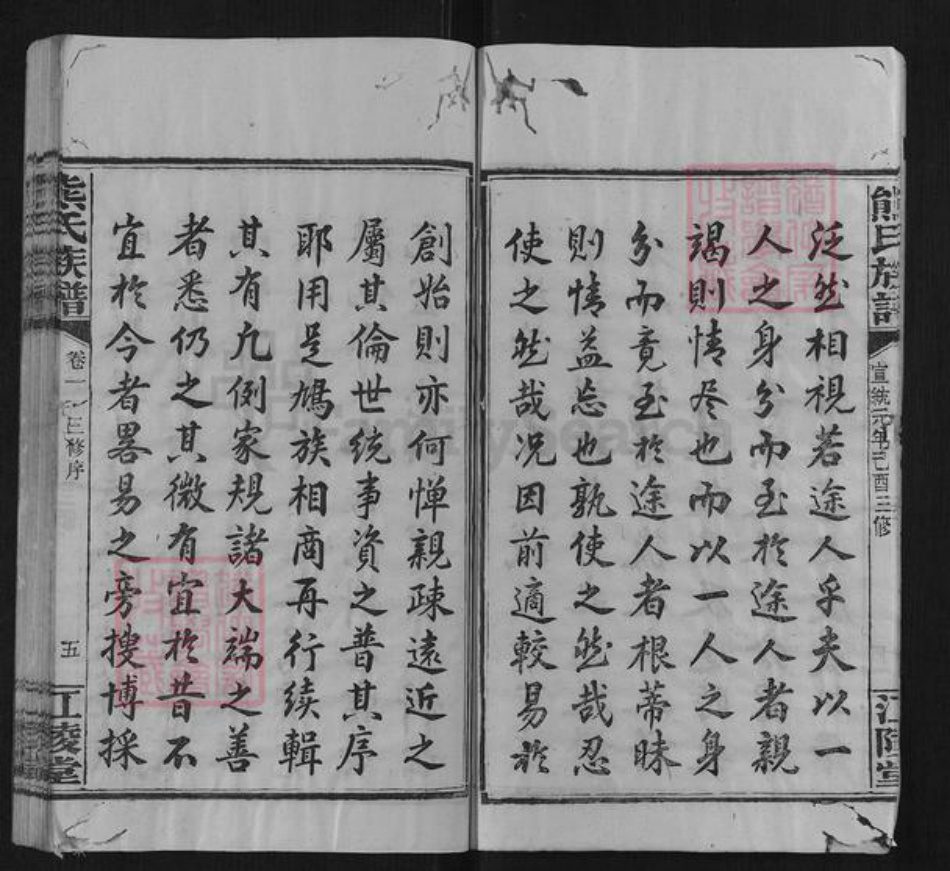 熊氏族譜
宣統元年己酉三修
江陵堂
泛然相視若途人乎夫以一
人之身分而至於途人者親
竭則情尽也而以一人之身
分而竟至於途人者根蒂昧
則情益忘也孰使之然哉忍
使之然哉况因前適較易於
創始則亦何憚親疎遠近之
屬其倫世統事資之普其序
耶用是鳩族相商再行续輯
其有凢例家規諸大端之善
者悉仍之其微有宜於昔不
宜於今者畧易之旁搜博採
熊氏族譜
卷一
三修序
五
江陵堂
FamilySearch